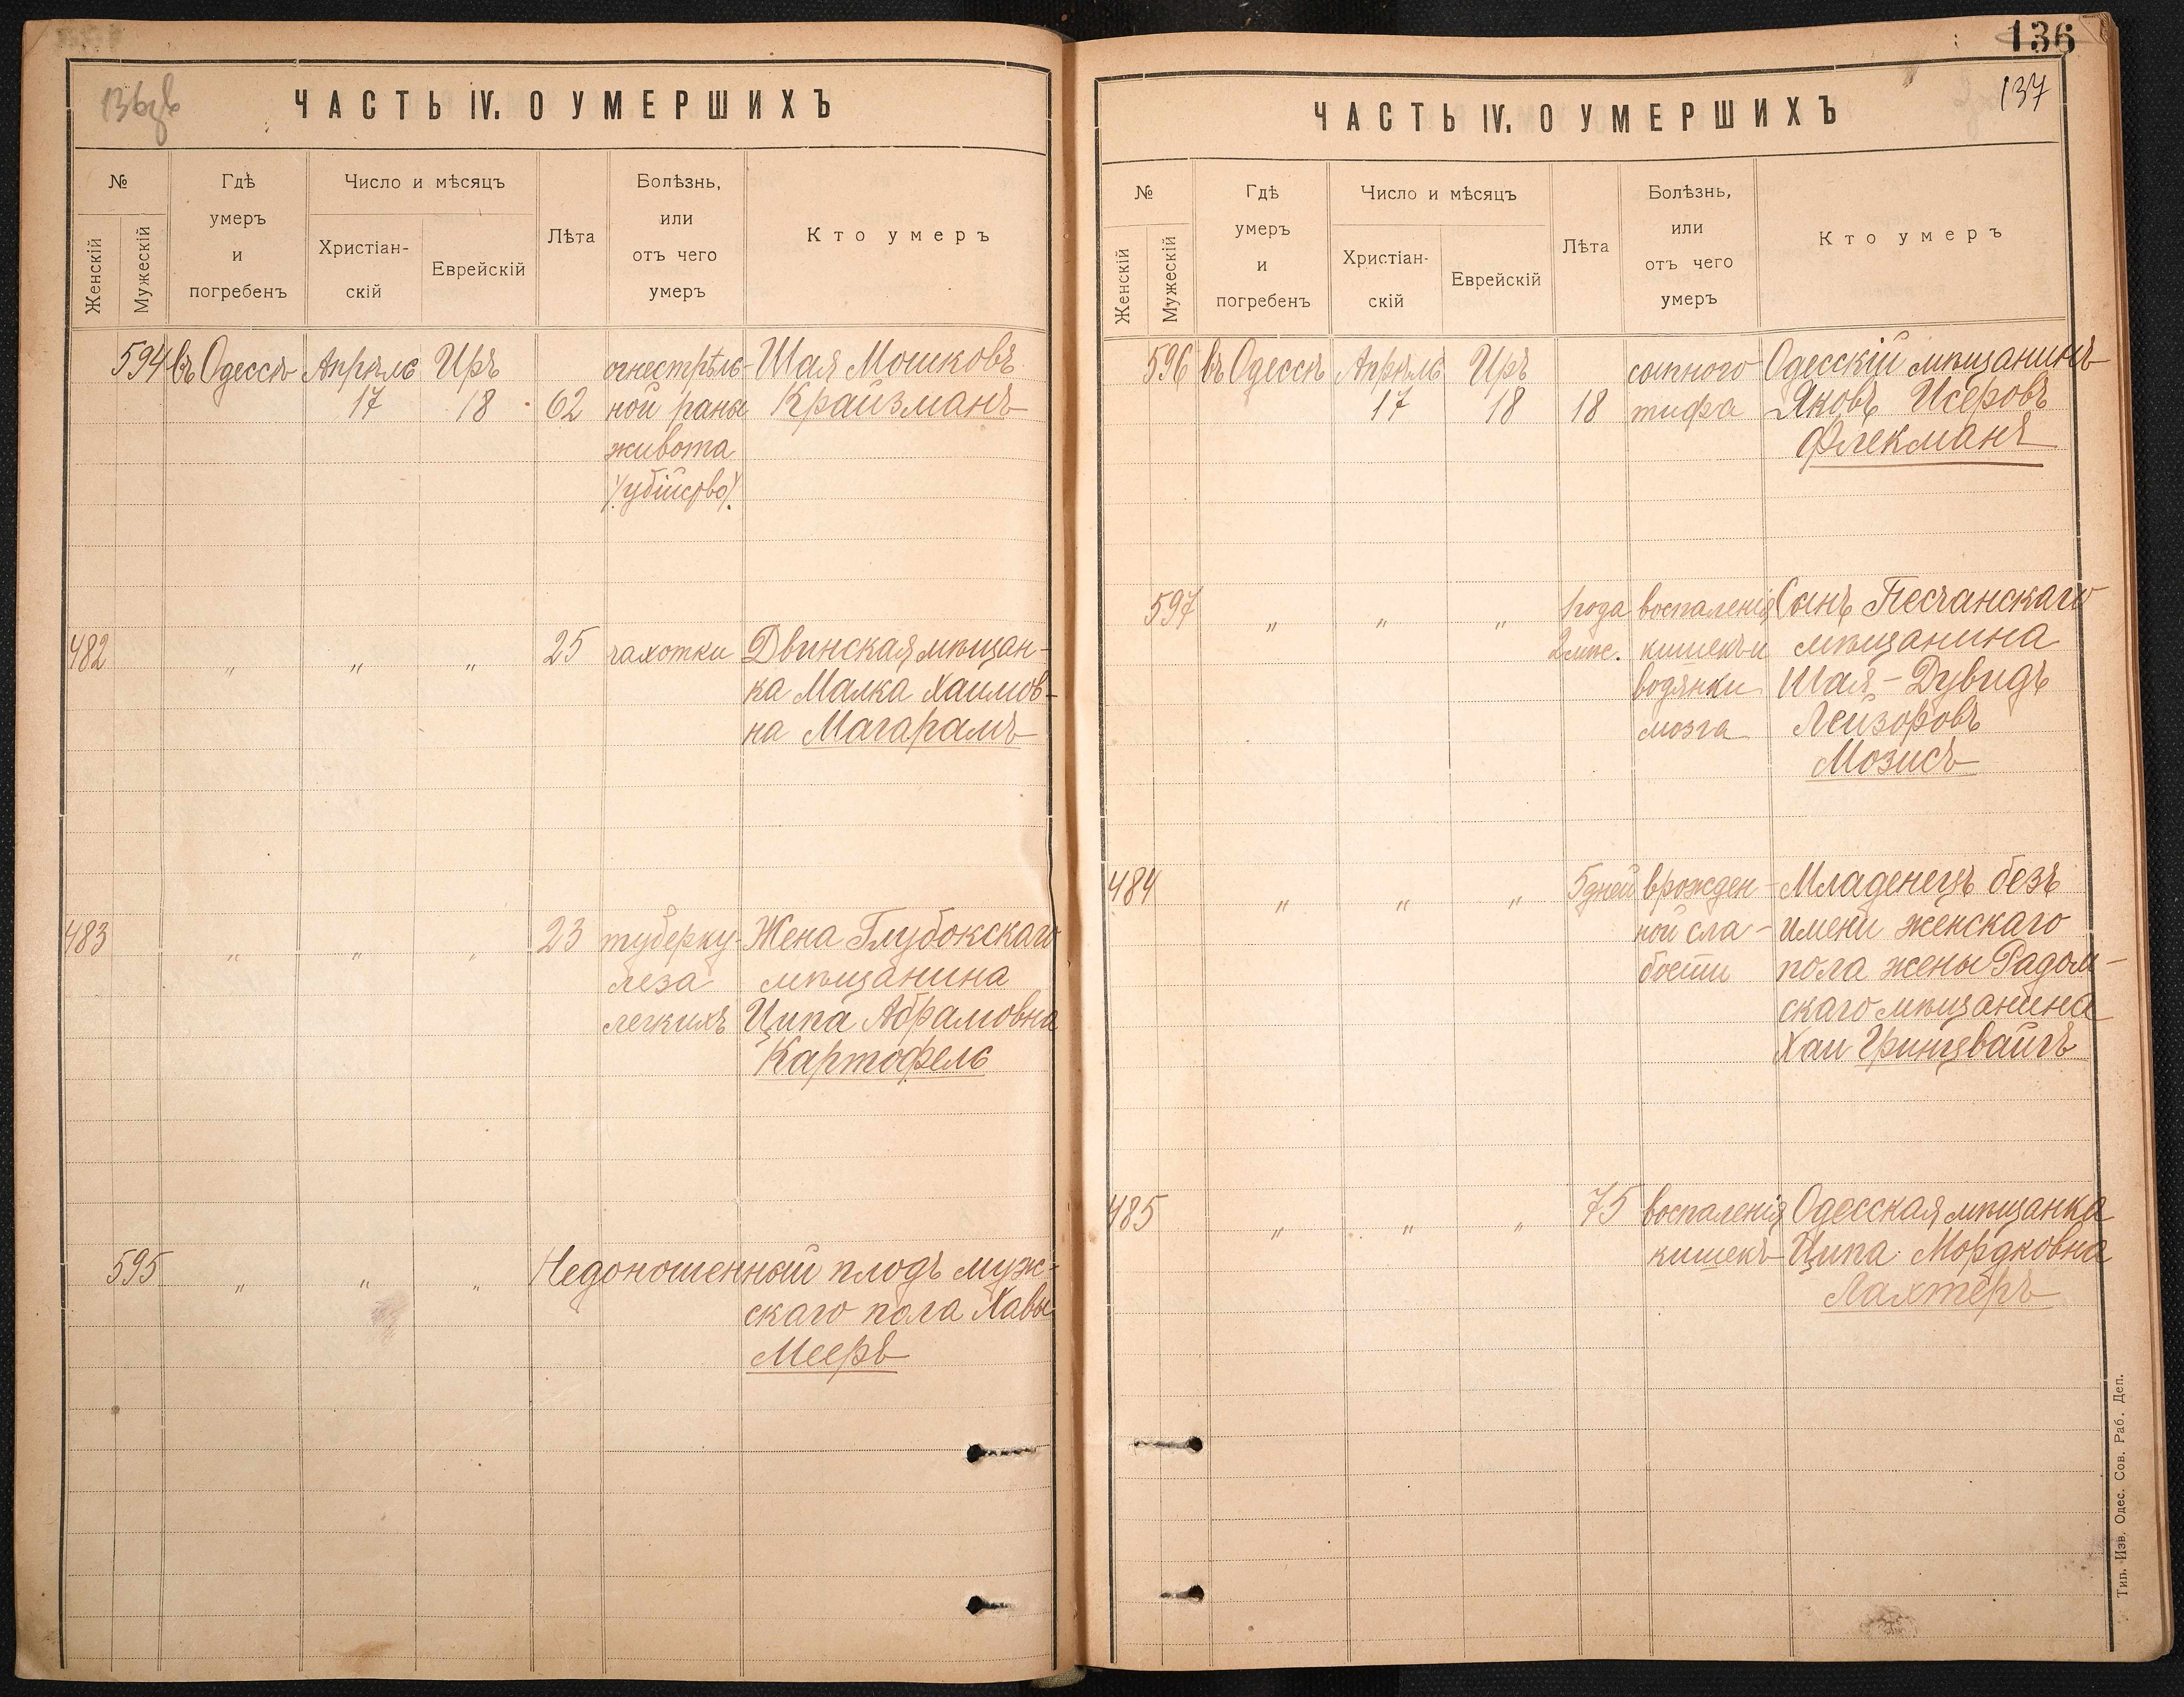 136об
ЧАСТЬ IV. О УМЕРШИХЪ
№
Женскій
Мужескій
Гдѣ
умеръ
и
погребенъ
Число и мѣсяцъ
Христіан-
скій
Еврейскій
Лѣта
Болѣзнь,
или
отъ чего
умеръ
Кто умеръ
594 въ Одессѣ Апрѣль Иръ огнестрѣль- Шая Мошковъ
17 18 62 ной раны Крайзманъ
живота
/убійство/
482 " " " 25 чахотки Двинская мѣщан-
ка Малка Хаимов-
на Магарамъ
483 " " " 23 туберку- Жена Глубокскаго
леза мѣщанина
легкихъ Ципа Абрамовна
Картофель
595 " " " Недоношенный плодъ муж-
скаго пола Хавы
Мееръ
136
137
ЧАСТЬ IV. О УМЕРШИХЪ
№
Женскій
Мужескій
Гдѣ
умеръ
и
погребенъ
Число и мѣсяцъ
Христіан-
скій
Еврейскій
Лѣта
Болѣзнь,
или
отъ чего
умеръ
Кто умеръ
596 въ Одессѣ Апрѣль Иръ сыпного Одесскій мѣщанинъ
17 18 18 тифа Яковъ Исеровъ
Флекманъ
597 " " " 1 года воспаленія Сынъ Песчанскаго
2 мѣс. кишекъ и мѣщанина
водянки Шая-Дувидъ
мозга Лейзоровъ
Мозисъ
484 " " " 5 дней врожден- Младенецъ безъ
ной сла- имени женскаго
бости пола жены Радом-
скаго мѣщанина
Хаи Гринцвайгъ
485 " " " 75 воспаленія Одесская мѣщанка
кишекъ Ципа Мордковна
Лахтеръ
Тип. Изв. Одес. Сов. Раб. Деп.